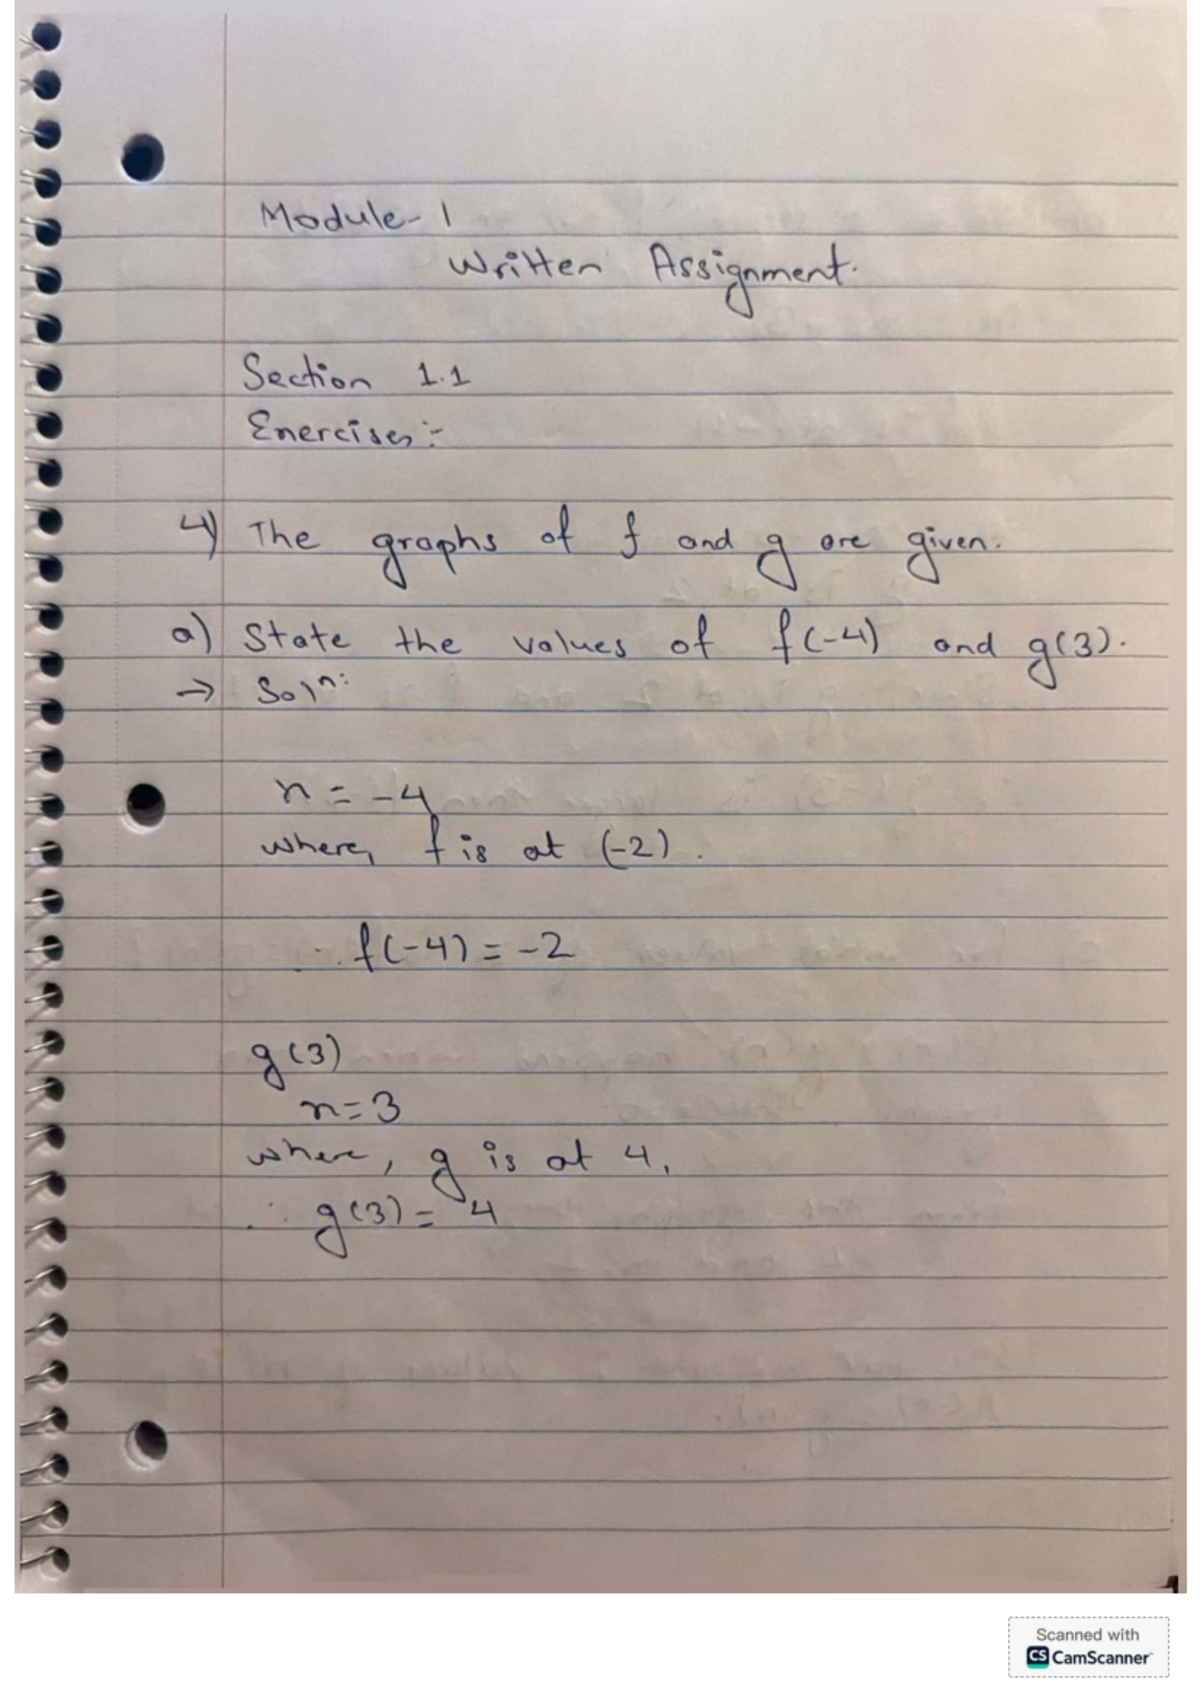 Module-1
Written Assignment.
Section 1.1
Exercises:-
4) The graphs of f and g are given.
a) State the values of f(-4) and g(3).
→ Solⁿ:
x = -4
where, f is at (-2).
∴ f(-4) = -2
g(3)
x = 3
where, g is at 4,
∴ g(3) = 4
Scanned with
CS CamScanner